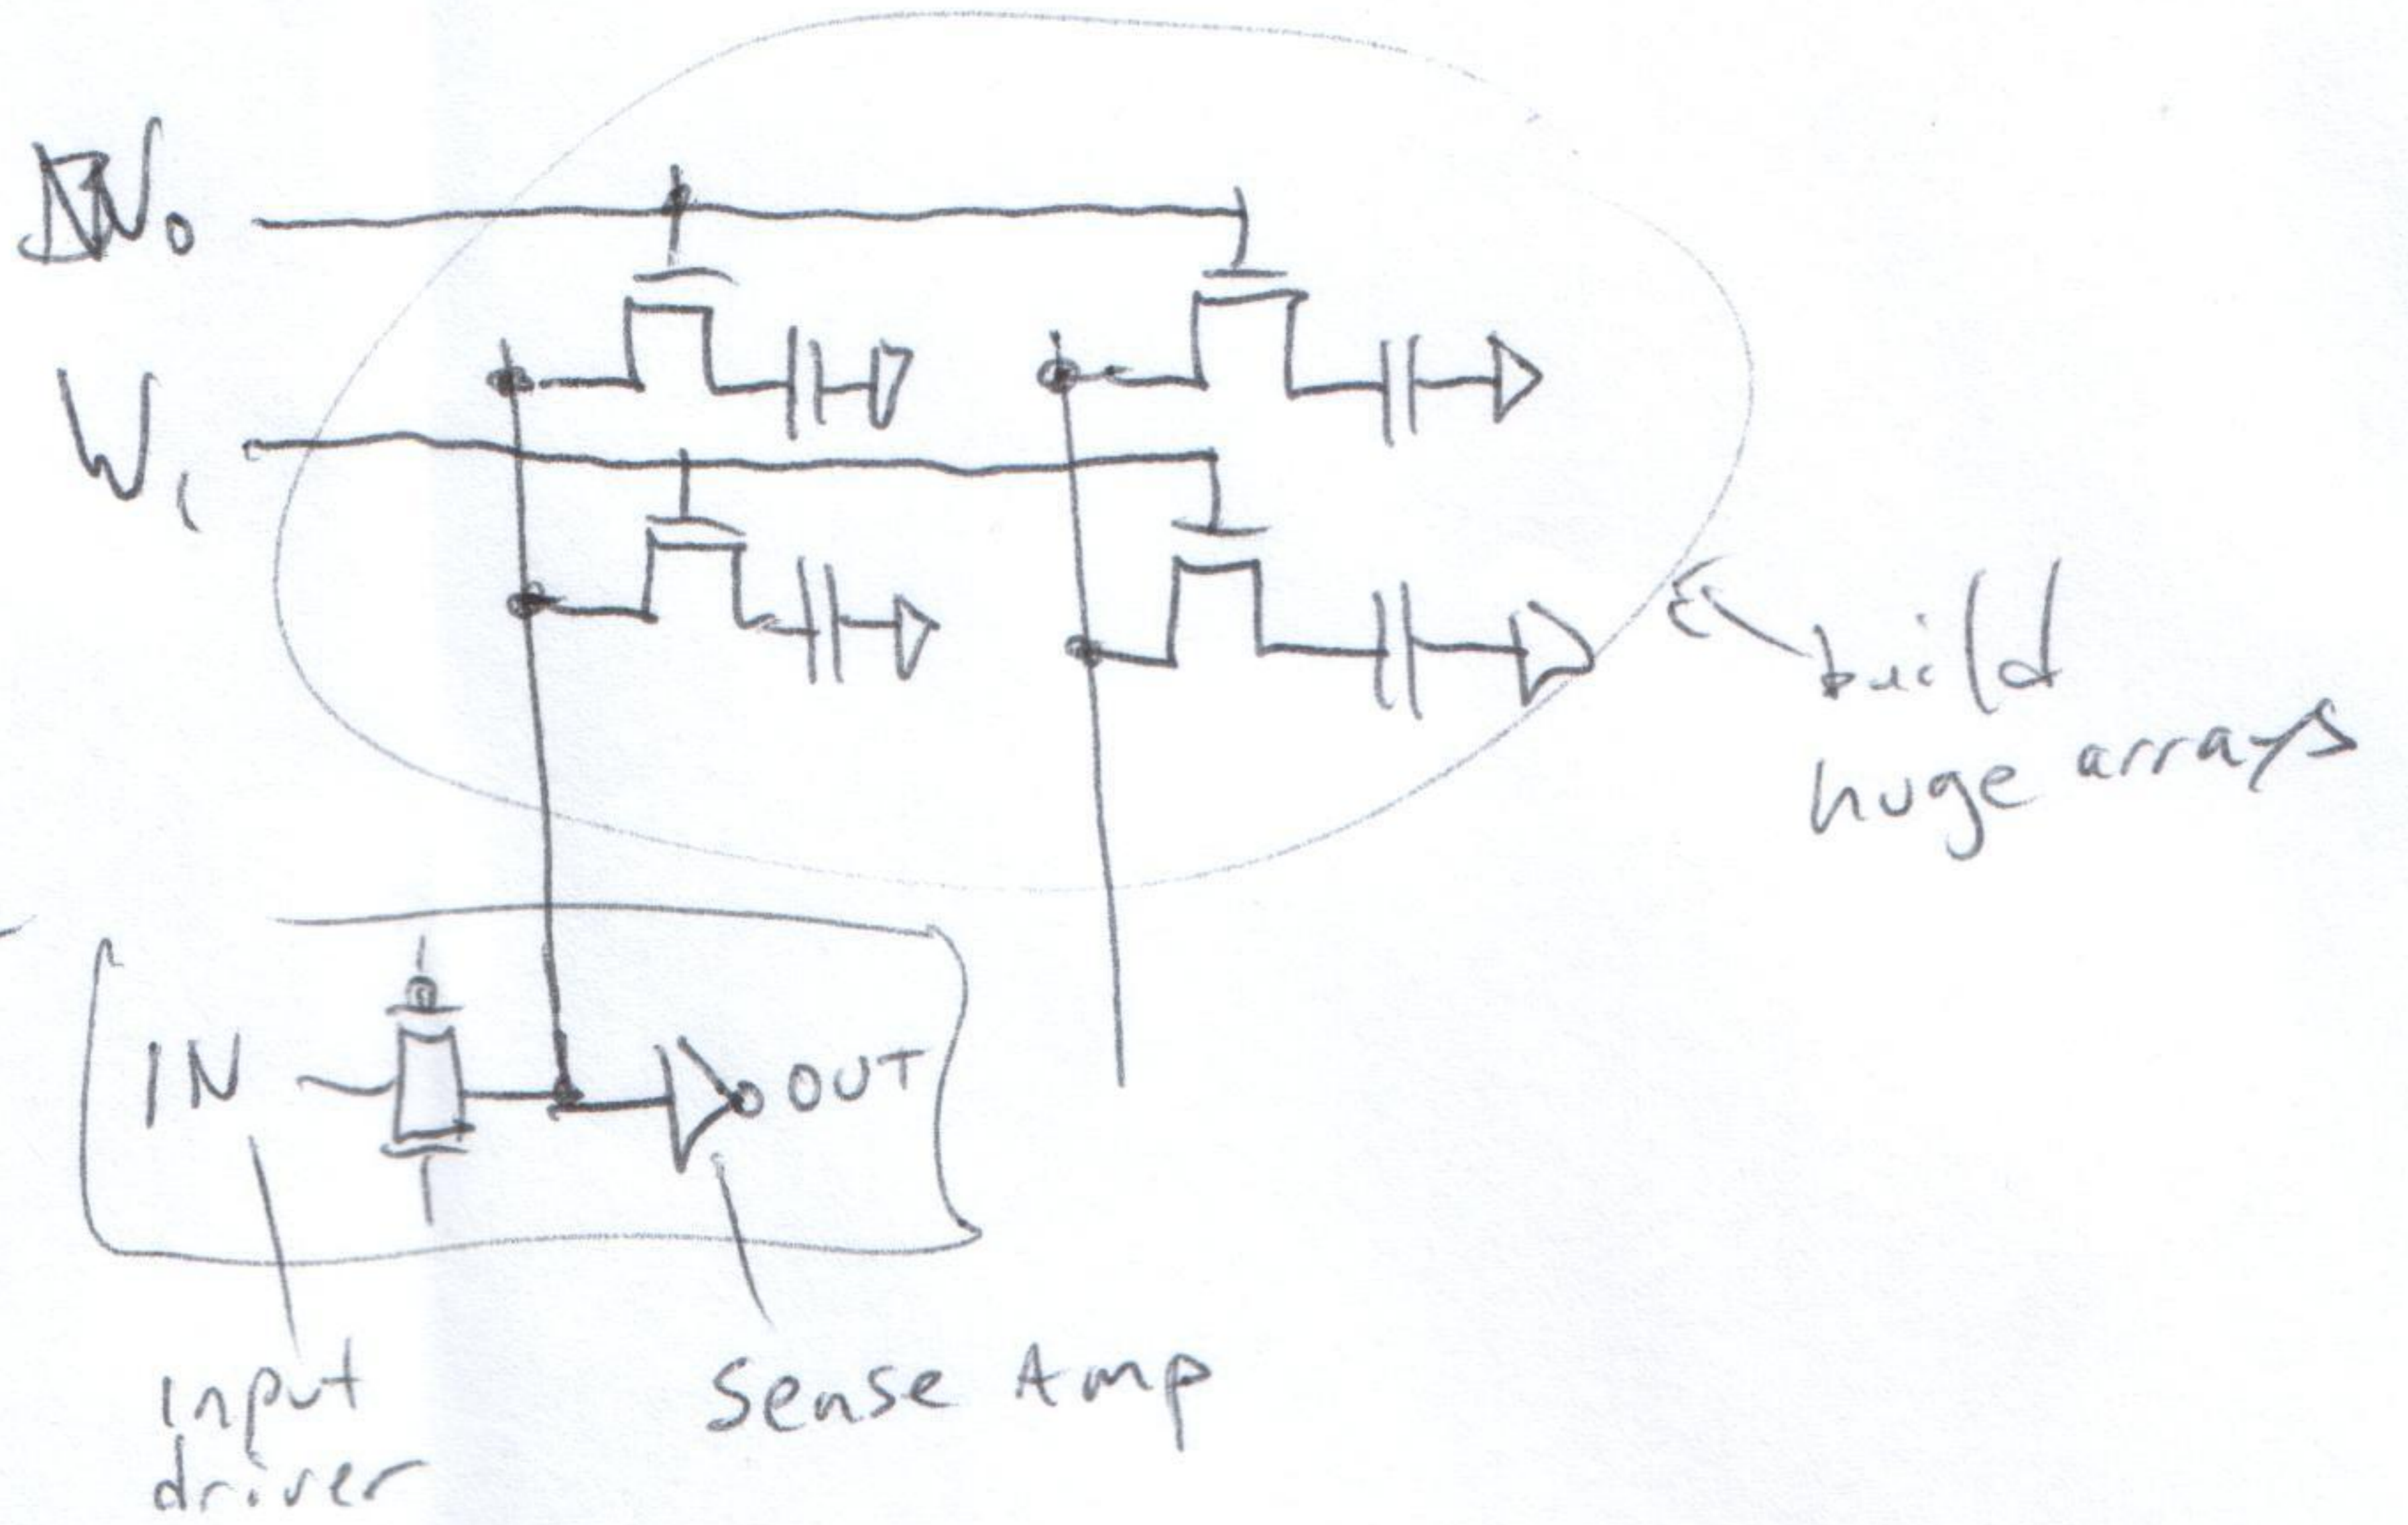 W₀
W₁
build
huge arrays
IN
OUT
input
driver
Sense Amp